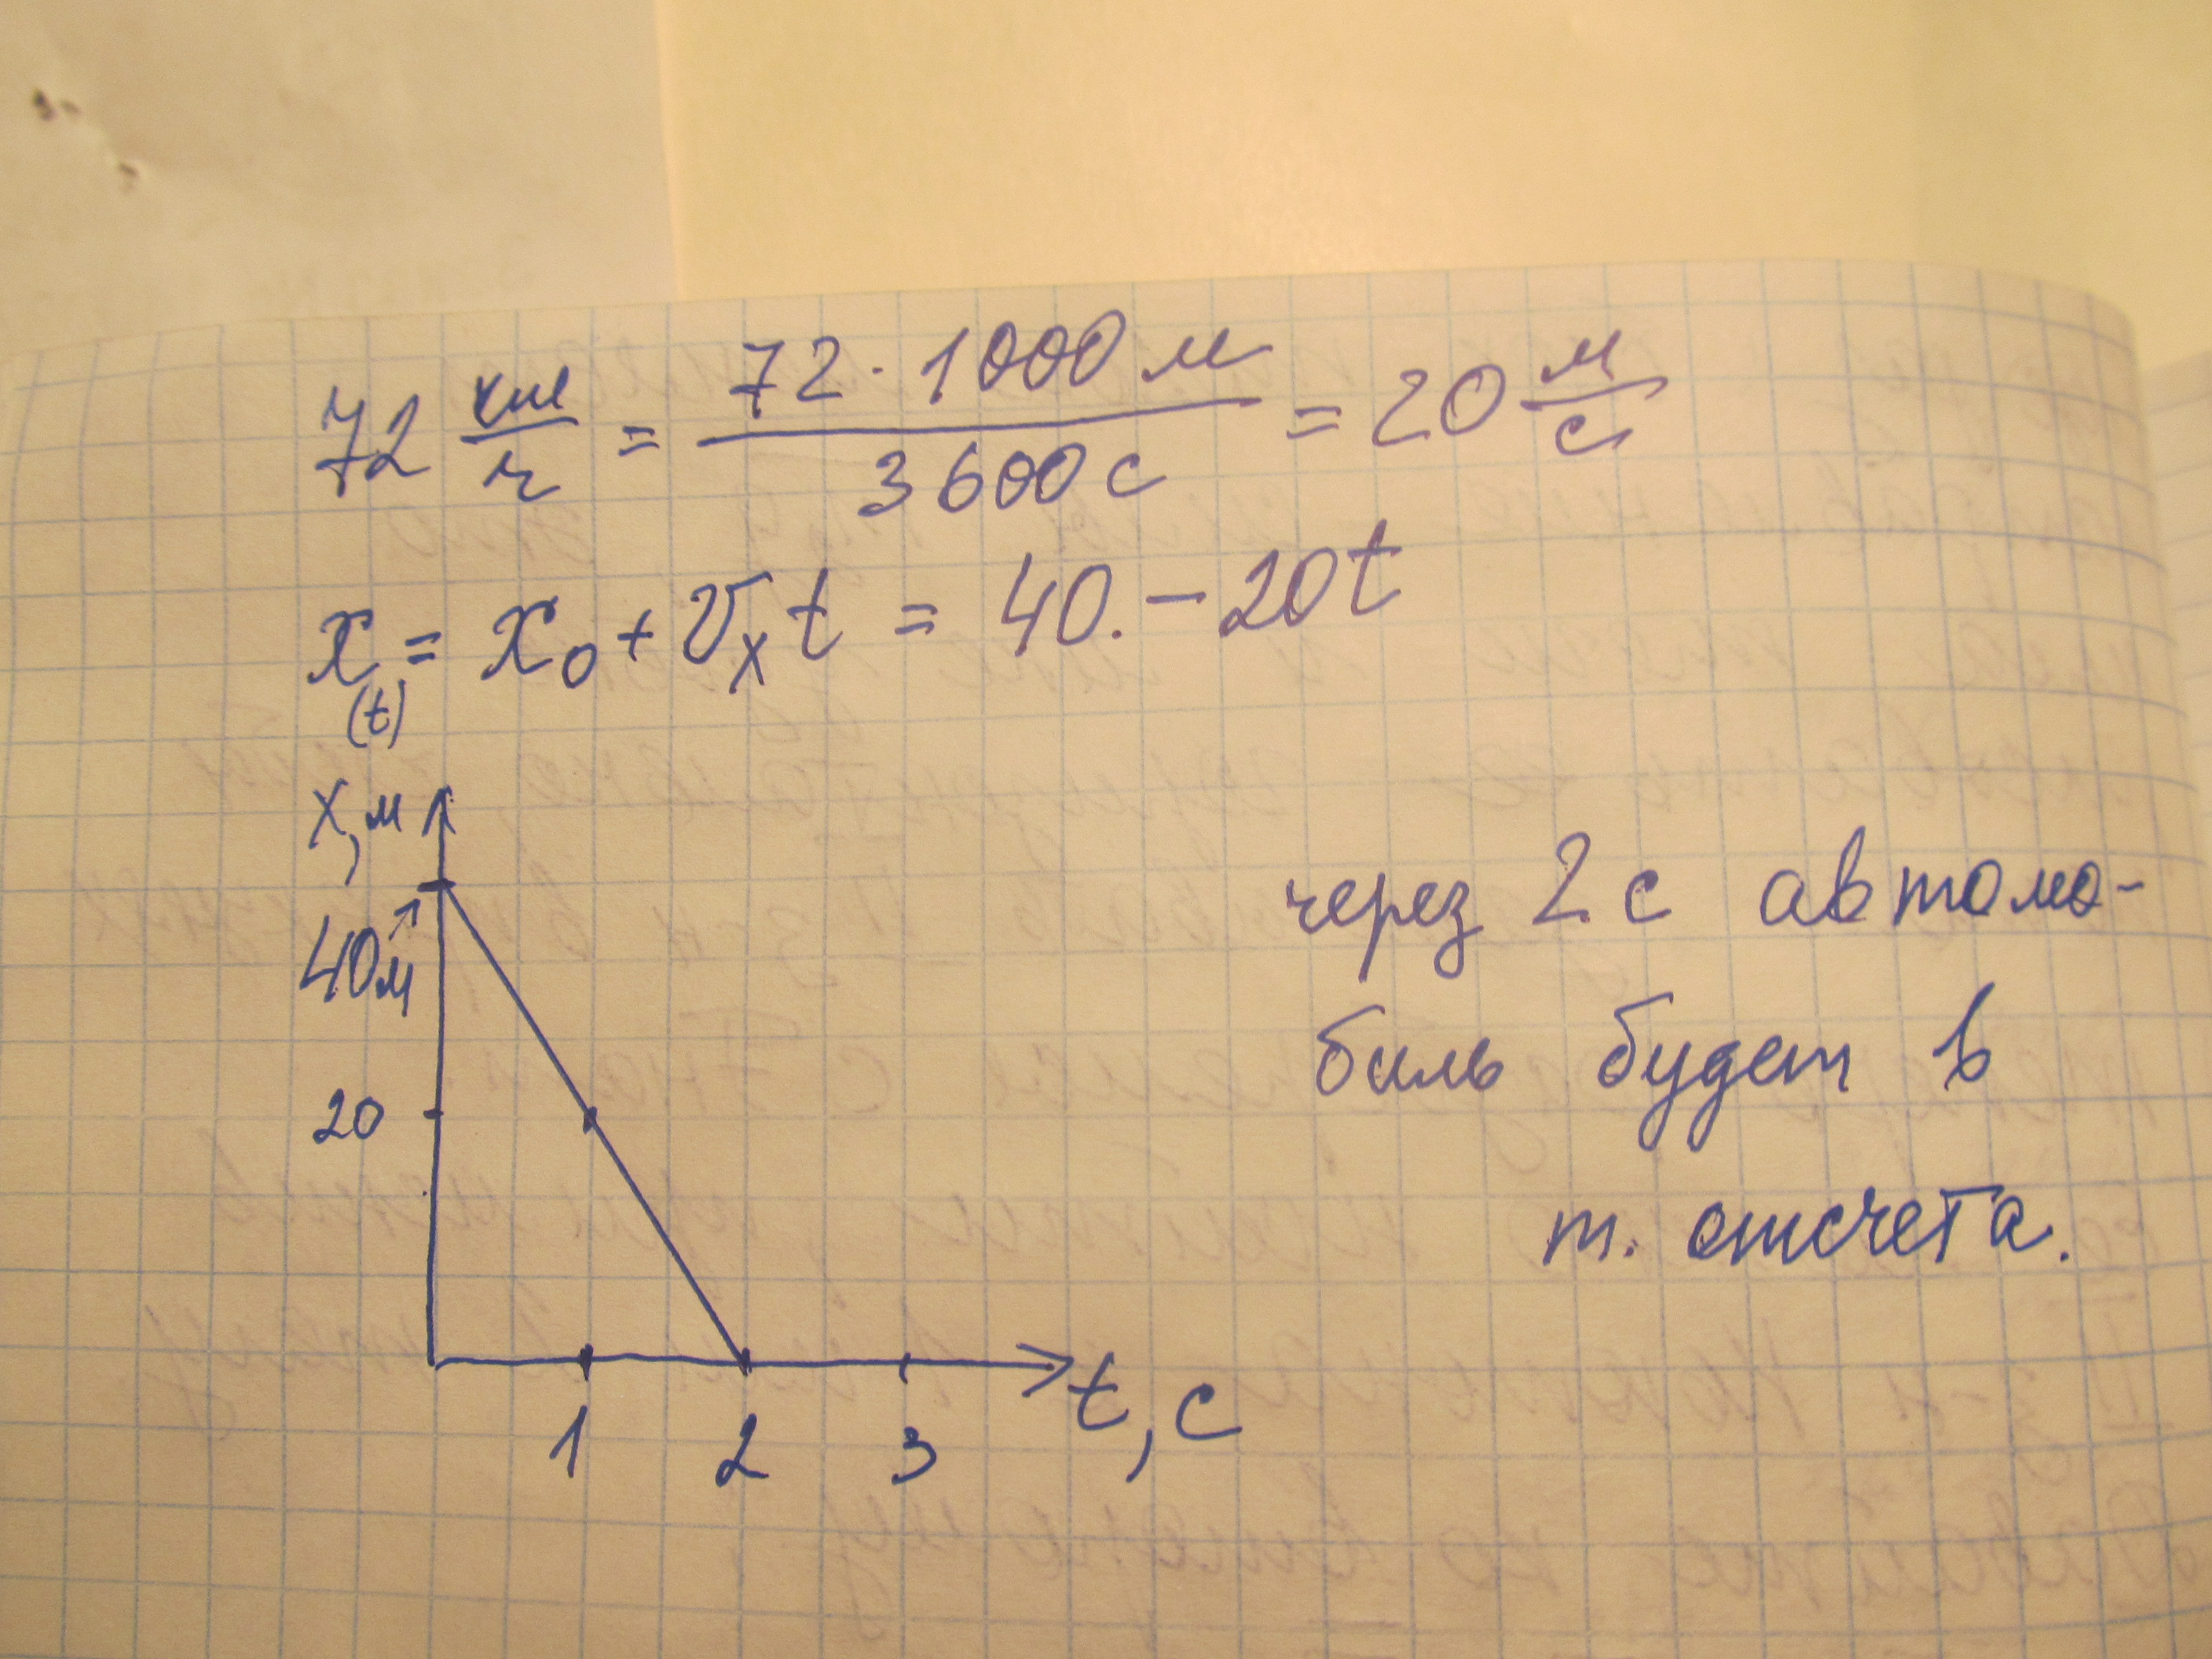 72 км/ч = 72 · 1000 м / 3600 с = 20 м/с
x(t) = x₀ + vₓt = 40. - 20t
x, м
40м
20
1 2 3 t, с
через 2 с автомо-
биль будет в
т. отсчета.